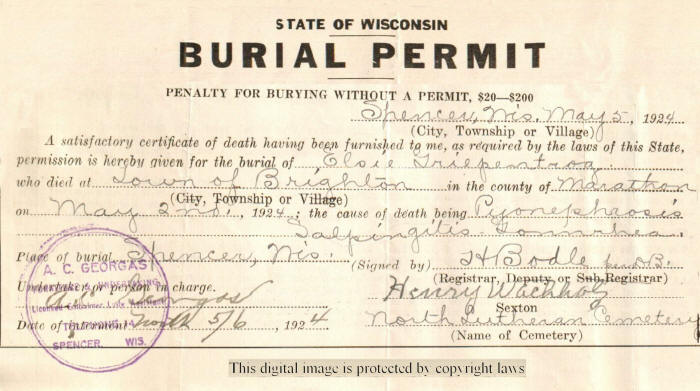 STATE OF WISCONSIN
BURIAL PERMIT
PENALTY FOR BURYING WITHOUT A PERMIT, $20—$200
Spencer, Wis. May 5, 1924
(City, Township or Village)
A satisfactory certificate of death having been furnished to me, as required by the laws of this State,
permission is hereby given for the burial of Elsie Griepentrog
who died at Town of Brighton in the county of Marathon
(City, Township or Village)
on May 2nd, 1924; the cause of death being Pyonephrosis
Salpingitis Gonorrhea.
Place of burial Spencer, Wis.
(Signed by) H Bodle
(Registrar, Deputy or Sub-Registrar)
Undertaker or person in charge.
Henry Wachholz
Sexton
Date of Interment 5/6, 1924
North Lutheran Cemetery
(Name of Cemetery)
A. C. GEORGAS
SPENCER, WIS.
This digital image is protected by copyright laws